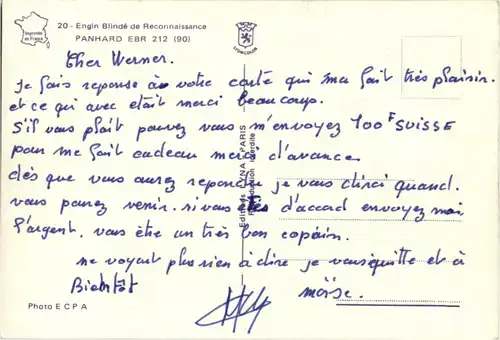 Imprimée en France
20 - Engin Blindé de Reconnaissance
PANHARD EBR 212 (90)
LYNA-COLOR
Cher Werner.
Je fais reponse à votre carte qui ma fait très plaisir.
et ce qui avec etait merci beaucoup.
S'il vous plait pouvez vous m'envoyez 100F SUISSE
pour me fait cadeau merci d'avance.
dès que vous aurez repondu je vous dirai quand.
vous pouvez venir. si vous êtes d'accord envoyez moi
l'argent. vous être un très bon copain.
ne voyant plus rien à dire je vous quitte et à
Bientôt
moïse.
Editions LYNA - PARIS
Reproduction interdite
Photo E C P A